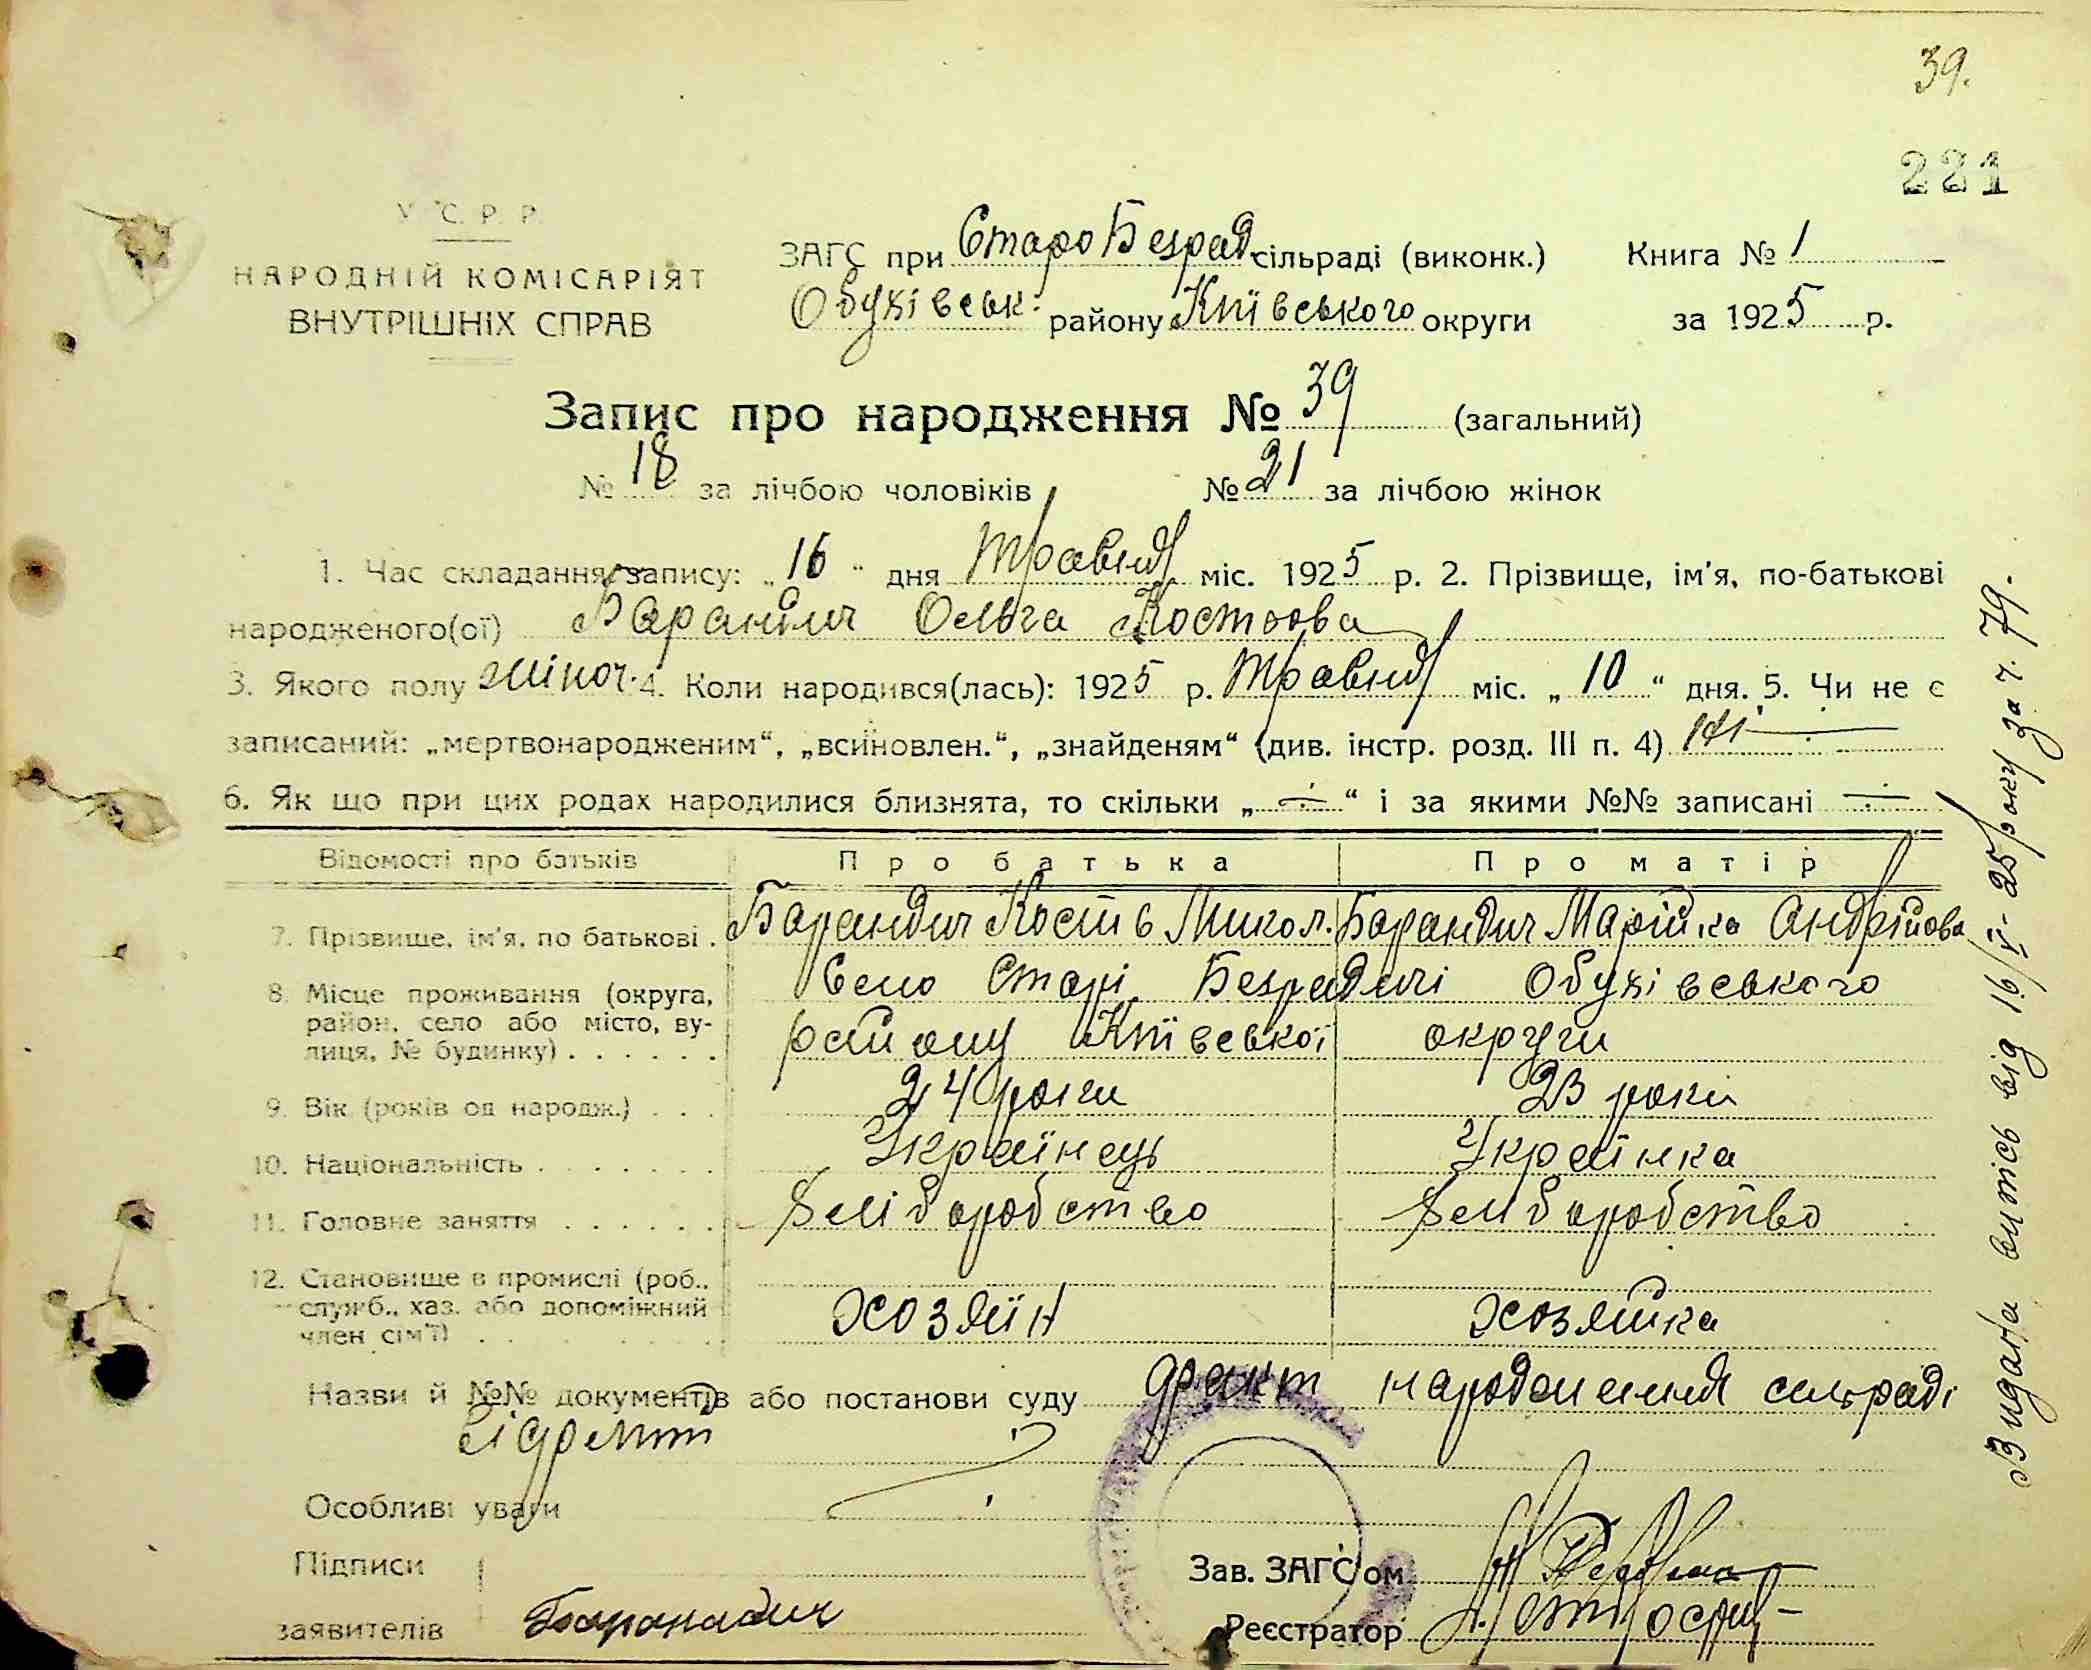 39.
221
У.С.Р.Р.
НАРОДНІЙ КОМІСАРІЯТ
ВНУТРІШНІХ СПРАВ
ЗАГС при СтароБезрад. сільраді (виконк.) Книга № 1
Обухівськ. району Київського округи за 1925 р.
Запис про народження № 39 (загальний)
№ 18 за лічбою чоловіків № 21 за лічбою жінок
1. Час складання запису: „16“ дня Травня міс. 1925 р. 2. Прізвище, ім'я, по-батькові
народженого(ої) Барандич Ольга Костьова
3. Якого полу жіноч. 4. Коли народився(лась): 1925 р. Травня міс. „10“ дня. 5. Чи не є
записаний: „мертвонародженим“, „всиновлен.“, „знайденям“ (див. інстр. розд. III п. 4)
6. Як що при цих родах народилися близнята, то скільки „ ÷ “ і за якими №№ записані ÷
Відомості про батьків Про батька Про матір
7. Прізвище, ім'я, по батькові . Барандич Кость Микол. Барандич Марійка Андрійова
8. Місце проживання (округа, район, село або місто, вулиця, № будинку) . . . . . . Село Старі Безрадичі Обухівського
району Київської округи
9. Вік (років од народж.) . . . 24 роки 23 роки
10. Національність . . . . . . . Українець Українка
11. Головне заняття . . . . . . Хліборобство Хліборобство
12. Становище в промислі (роб., служб., хаз. або допоміжний член сім'ї) . . . . . . . Хозяїн хозяйка
Назви й №№ документів або постанови суду факт народження сільраді
відомий
Особливі уваги
Підписи
заявителів Баранадич
Зав. ЗАГС'ом
Реєстратор
Видана випись від 16/V-25 року за ч. 79.